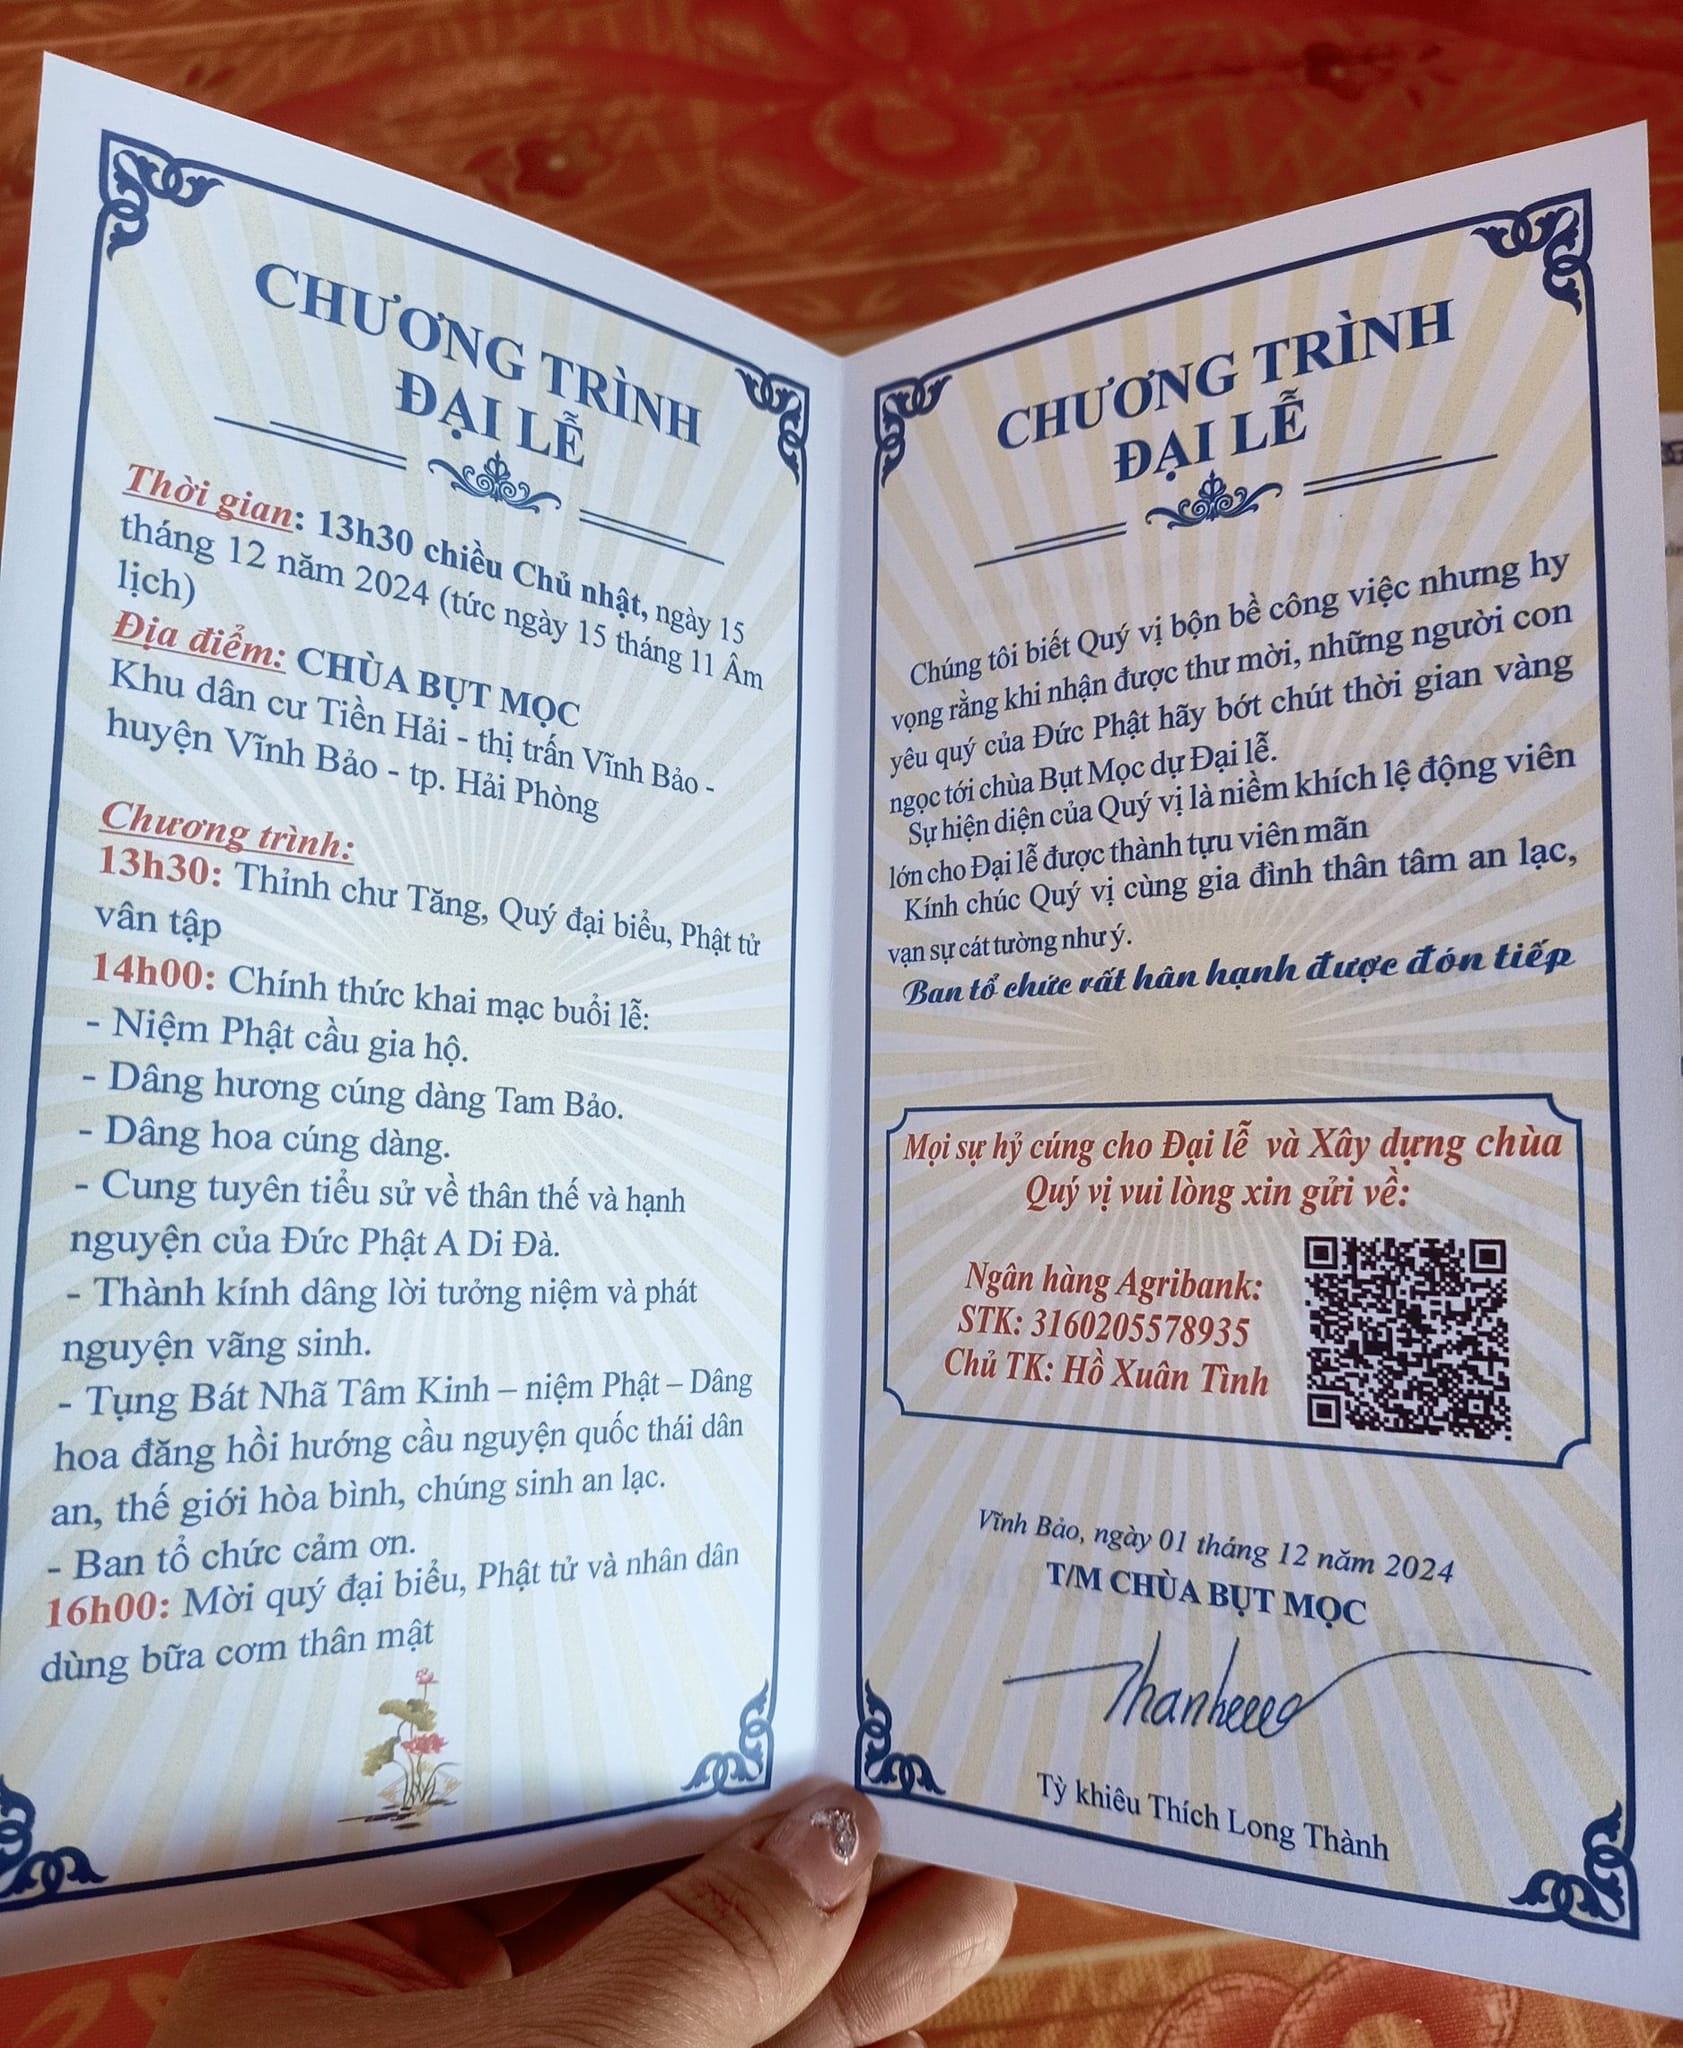 CHƯƠNG TRÌNH
ĐẠI LỄ
Thời gian: 13h30 chiều Chủ nhật, ngày 15
tháng 12 năm 2024 (tức ngày 15 tháng 11 Âm
lịch)
Địa điểm: CHÙA BỤT MỌC
Khu dân cư Tiền Hải - thị trấn Vĩnh Bảo -
huyện Vĩnh Bảo - tp. Hải Phòng
Chương trình:
13h30: Thỉnh chư Tăng, Quý đại biểu, Phật tử
vân tập
14h00: Chính thức khai mạc buổi lễ:
- Niệm Phật cầu gia hộ.
- Dâng hương cúng dàng Tam Bảo.
- Dâng hoa cúng dàng.
- Cung tuyên tiểu sử về thân thế và hạnh
nguyện của Đức Phật A Di Đà.
- Thành kính dâng lời tưởng niệm và phát
nguyện vãng sinh.
- Tụng Bát Nhã Tâm Kinh – niệm Phật – Dâng
hoa đăng hồi hướng cầu nguyện quốc thái dân
an, thế giới hòa bình, chúng sinh an lạc.
- Ban tổ chức cảm ơn.
16h00: Mời quý đại biểu, Phật tử và nhân dân
dùng bữa cơm thân mật
CHƯƠNG TRÌNH
ĐẠI LỄ
Chúng tôi biết Quý vị bộn bề công việc nhưng hy
vọng rằng khi nhận được thư mời, những người con
yêu quý của Đức Phật hãy bớt chút thời gian vàng
ngọc tới chùa Bụt Mọc dự Đại lễ.
Sự hiện diện của Quý vị là niềm khích lệ động viên
lớn cho Đại lễ được thành tựu viên mãn
Kính chúc Quý vị cùng gia đình thân tâm an lạc,
vạn sự cát tường như ý.
Ban tổ chức rất hân hạnh được đón tiếp
Mọi sự hỷ cúng cho Đại lễ và Xây dựng chùa
Quý vị vui lòng xin gửi về:
Ngân hàng Agribank:
STK: 3160205578935
Chủ TK: Hồ Xuân Tình
Vĩnh Bảo, ngày 01 tháng 12 năm 2024
T/M CHÙA BỤT MỌC
Tỳ khiêu Thích Long Thành